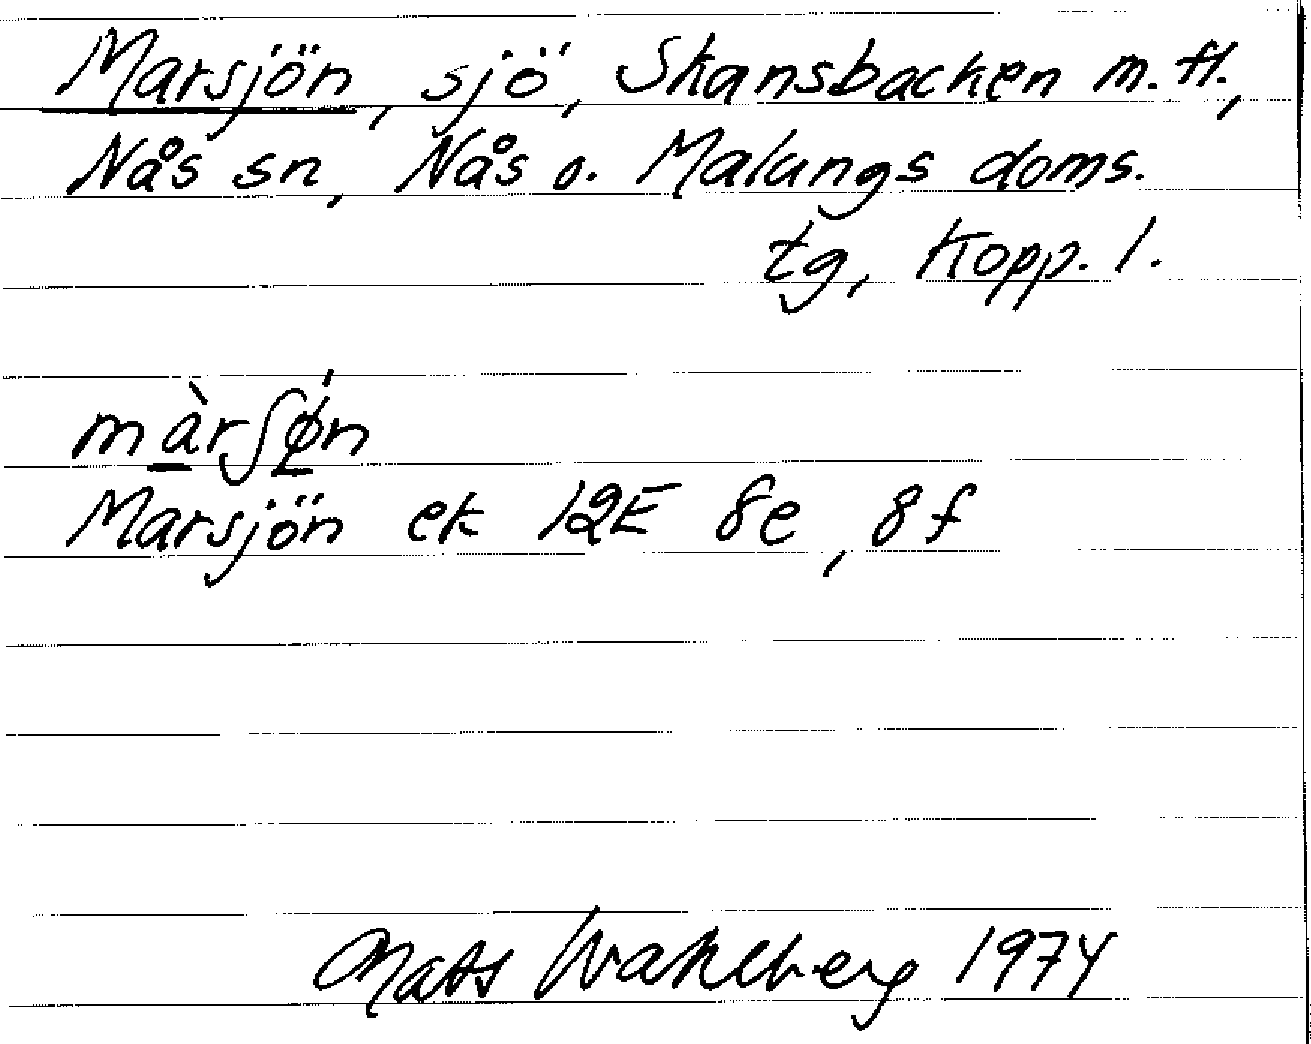 Marsjön, sjö, Skansbacken m.fl.,
Nås sn, Nås o. Malungs doms.
tg, Kopp. l.
mà̱rʃǿ̱n
Marsjön ek 12E 8e, 8f
Mats Wahlberg 1974